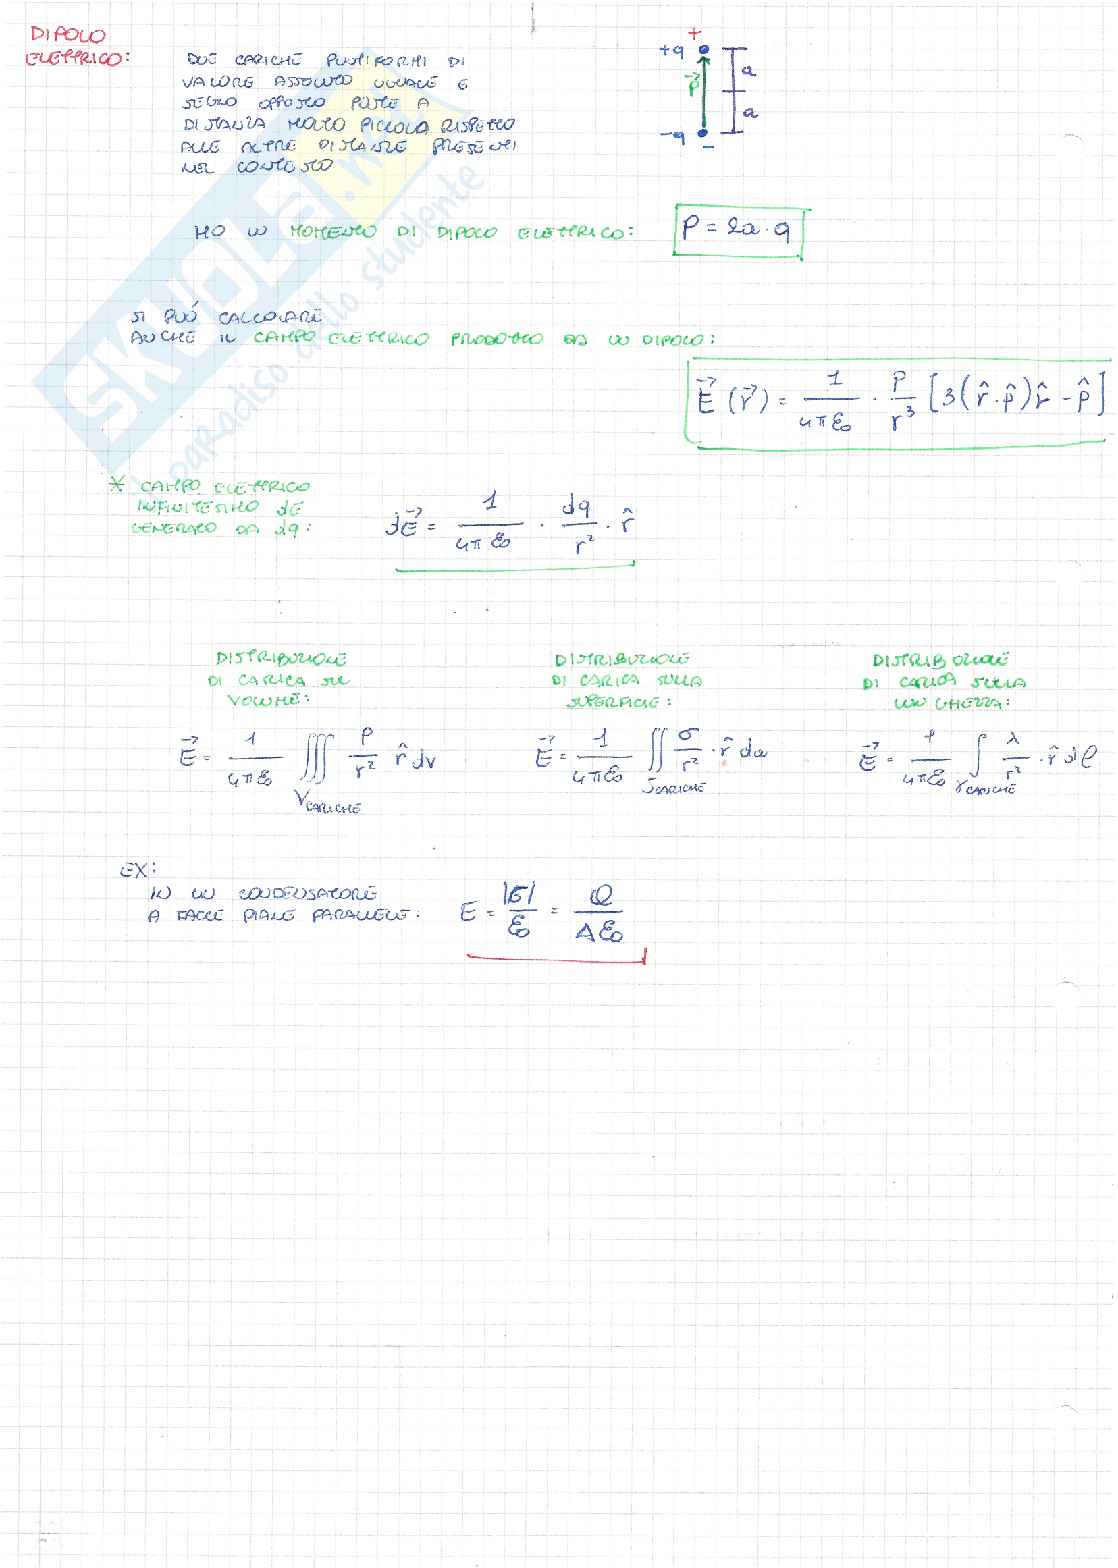 DIPOLO
ELETTRICO:
DUE CARICHE PUNTIFORMI DI
VALORE ASSOLUTO UGUALE E
SEGNO OPPOSTO POSTE A
DISTANZA MOLTO PICCOLA RISPETTO
ALLE ALTRE DISTANZE PRESENTI
NEL CONTESTO
+
+q
p⃗
a
a
-q
-
HO UN MOMENTO DI DIPOLO ELETTRICO: P = 2a · q
SI PUÓ CALCOLARE
ANCHE IL CAMPO ELETTRICO PRODOTTO DA UN DIPOLO:
E⃗ (r⃗) = 1/4πε₀ · P/r³ [3(r̂·p̂)r̂ - p̂]
* CAMPO ELETTRICO
INFINITESIMO dE
GENERATO DA dq:
dE⃗ = 1/4πε₀ · dq/r² · r̂
DISTRIBUZIONE
DI CARICA SU
VOLUME:
E⃗ = 1/4πε₀ ∭ V CARICHE ρ/r² r̂ dv
DISTRIBUZIONE
DI CARICA SULLA
SUPERFICIE:
E⃗ = 1/4πε₀ ∬ S CARICHE σ/r² · r̂ da
DISTRIBUZIONE
DI CARICA SULLA
LUNGHEZZA:
E⃗ = 1/4πε₀ ∫ γ CARICHE λ/r² · r̂ dl
EX:
IN UN CONDENSATORE
A FACCE PIANE PARALLELE: E = |σ|/ε₀ = Q/Aε₀
SKUOLA.net
il paradiso dello studente